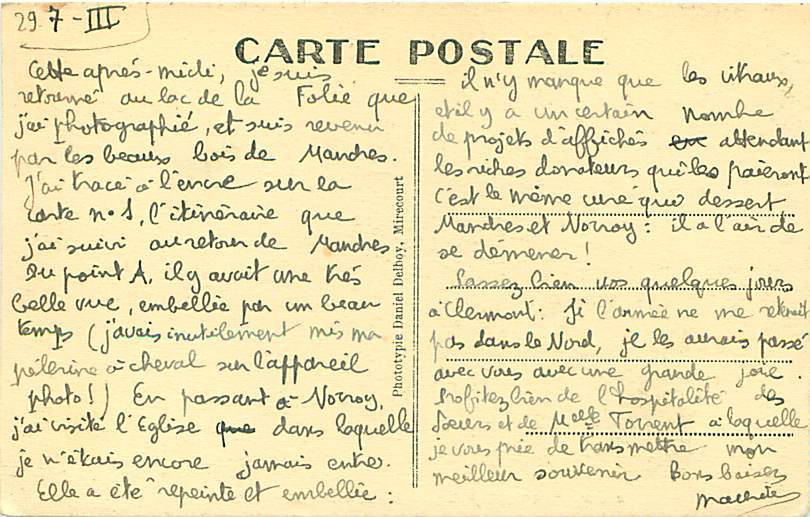 29-7-III
CARTE POSTALE
Cette après-midi, je suis
retourné au lac de la Folie que
j'ai photographié, et suis revenu
par les beaux bois de Mandres.
J'ai tracé à l'encre sur la
carte n°1, l'itinéraire que
j'ai suivi au retour de Mandres
Du point A, il y avait une très
belle vue, embellie par un beau
temps (j'avais inutilement mis ma
pélerine à cheval sur l'appareil
photo!) En passant à Norroy,
j'ai visité l'Eglise que dans laquelle
je n'étais encore jamais entré.
Elle a été repeinte et embellie :
Phototypie Daniel Delboy, Mirecourt
il n'y manque que les vitraux,
et il y a un certain nombre
de projets d'affichés en attendant
les riches donateurs qui les paieront
C'est le même curé qui dessert
Mandres et Norroy : il a l'air de
se démener !
Passez bien vos quelques jours
à Clermont : Si l'armée ne me retenait
pas dans le Nord, je les aurais passé
avec vous avec une grande joie.
Profitez bien de l'hospitalité des
Soeurs et de Melle Torrent à laquelle
je vous prie de transmettre mon
meilleur souvenir Bons baisers